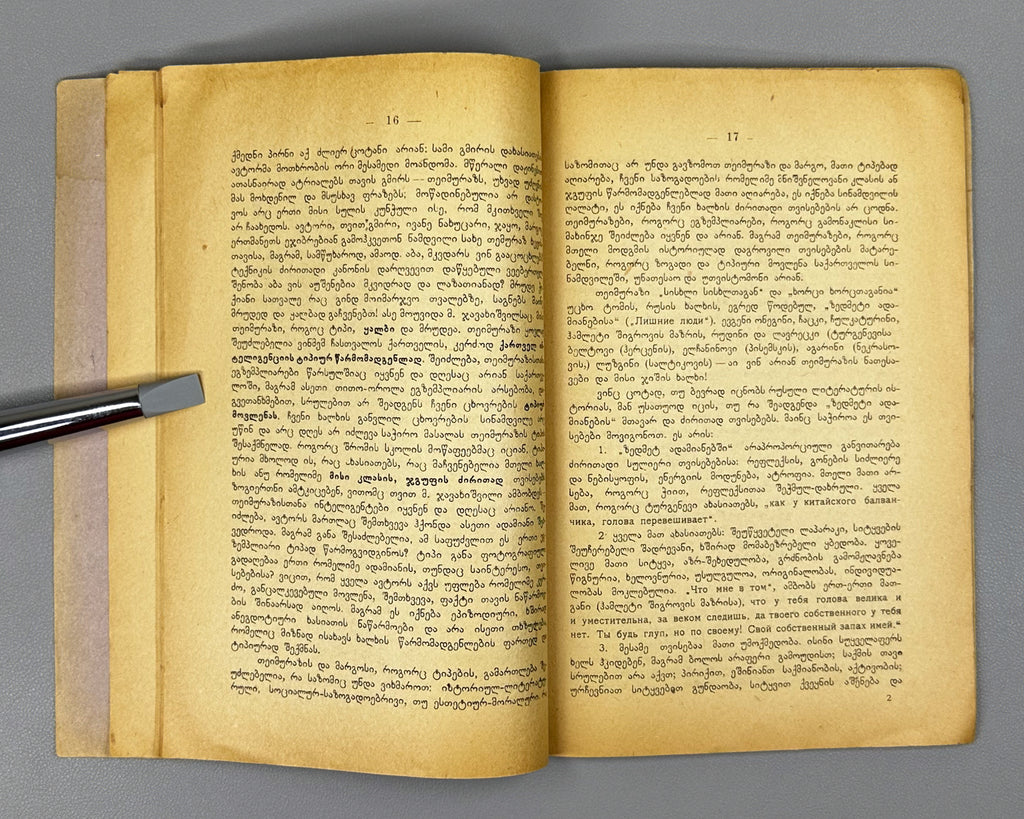 — 16 —
ქმედნი პირნი აქ ძლიერ ცოტანი არიან: სამი გმირის დახასიათებ
ავტორმა მოთხრობის ორი მესამედი მოანდომა. მწერალი დაჟინებ
ათასნაირად ატრიალებს თავის გმირს — თეიმურაზს, უხვად უძღვ
მას მოხდენილ და მსუსხავ ფრაზებს; მოწადინებულია არ დასტ
ვოს არც ერთი მისი სულის კუნჭული ისე, რომ მკითხველი
არ ჩაახედოს. ავტორი, თვით გმირი, ივანე ნახუცარი, ჯაყო, მარგო
ერთმანეთს ეჯიბრებიან გამოჰკვეთონ ნამდვილი სახე თემურაზ
თავისა, მაგრამ, სამწუხაროდ, ამაოდ. აბა, მკვდარს ვინ გააცოცხლებ
ტექნიკის ძირითადი კანონის დარღვევით დაწყებული ვეებერთ
შენობა აბა ვის აუშენებია მკვიდრად და ლაზათიანად? მრუდე
ქიანი სათვალე რაც გინდ მოიმარჯვო თვალებზე, საგნებს მაინ
მრუდედ და ყალბად გაჩვენებთ! ასე მოუვიდა მ. ჯავახიშვილსაც.
თეიმურაზი, როგოც ტიპი, ყალბი და მრუდეა. თეიმურაზი ყოვლ
შეუძლებელია ვინმემ ჩასთვალოს ქართველის, კერძოდ ქართველ ი
ტელიგენციის ტიპიურ წარმომადგენლად. შეიძლება, თეიმურაზისთანა
ეგზემპლიარები წარსულშიაც იყვნენ და დღესაც არიან საქართ
ლოში, მაგრამ ასეთი თითო-ოროლა ეგზემპლიარის არსებობა,
გვეთანხმებით, სრულებით არ შეადგენს ჩვენი ცხოვრების ტიპიუ
მოვლენას. ჩვენი ხალხის განვლილ ცხოვრების სინამდვილე
უწინ და არც დღეს არ იძლევა საჭირო მასალას თეიმურაზის
შესაქმნელად. როგორც შრომის სკოლის მოწაფეებმაც იციან, ტიპ
ურია მხოლოდ ის, რაც ახასიათებს, რაც მაჩვენებელია მთელი ხალ
ხის ანუ რომელიმე მისი კლასის, ჯგუფის ძირითად თვისებებ
ზოგიერთნი ამტკიცებენ, ვითომც თვით მ. ჯავახიშვილი ამბობდეს
თეიმურაზისთანა ინტელიგენტები იყვნენ და დღესაც არიანო.
იძლება, ავტორს მართლაც შემთხვევა ჰქონდა ასეთი ადამიანი შე
ვედროდა. მაგრამ განა შესაძლებელია, ამ საფუძვლით ეს ერთი
ზემპლიარი ტიპად წარმოგვიდგინოს? ტიპი განა ფოტოგრაფიულ
გადაღებაა ერთი რომელიმე ადამიანის, თუნდაც საინტერესო,
სებებისა? ვიცით, რომ ყველა ავტორს აქვს უფლება რომელიმე
ძო, განცალკევებული მოვლენა, შემთხვევა, ფაქტი თავის ნაწარმო
ბის შინაარსად აიღოს. მაგრამ ეს იქნება ეპიზოდიური, ხშირად
ანეგდოტიური ხასიათის ნაწარმოები და არა ისეთი თხზულება
რომელიც მიზნად ისახავს ხალხის წარმომადგენლების ფართედ
ტიპიურად შექმნას.
თეიმურაზის და მარგოსი, როგორც ტიპების, გამართლება
უძლებელია, რა საზომიც უნდა ვიხმაროთ: ისტორიულ-ლიტერატუ
რული, სოციალურ-საზოგადოებრივი, თუ ესთეტიურ-მორალური.
— 17 —
საზომითაც არ უნდა გავზომოთ თეიმურაზი და მარგო, მათი ტიპებად
აღიარება, ჩვენი საზოგადოების რომელიმე მნიშვნელოვანი კლასის ან
ჯგუფის წარმომადგენლებლად მათი აღიარება, ეს იქნება სინამდვილის
ღალატი, ეს იქნება ჩვენი ხალხის ძირითადი თვისებების არ ცოდნა.
თეიმურაზები, როგორც ეგზემპლიარები, როგორც გამონაკლისი სი-
მახინჯე შეიძლება იყვნენ და არიან. მაგრამ თეიმურაზები, როგორც
მთელი მოდგმის ისტორიულად დაგროვილი თვისებების მატარე-
ბელნი, როგორც ზოგადი და ტიპიური მოვლენა საქართველოს სი-
ნამდვილეში, უნათესაო და უთვისტომონი არიან.
თეიმურაზი „სისხლი სისხლთაგან“ და „ხორცი ხორცთაგანია“
უცხო ტომის, რუსის ხალხის, ეგრედ წოდებულ, „ზედმეტი ადა-
მიანებისა“ („Лишние люди“). ევგენი ონეგინი, ჩაცკი, ჩულკატურინი,
ჰამლეტი შიგროვის მაზრის, რუდინი და ლავრეცკი (ტურგენევისა
ბელტოვი (ჰერცენის), ელჩანინოვი (პისემსკის), აგარინი (ნეკრასო-
ვის), ლუზგინი (სალტიკოვის) — აი ვინ არიან თეიმურაზის ნათესა-
ვები და მისი ჯიშის ხალხი!
ვინც ცოტად, თუ ბევრად იცნობს რუსული ლიტერატურის ის-
ტორიას, მან უსათუოდ იცის, თუ რა შეადგენდა „ზედმეტი ადა-
მიანების“ მთავარ და ძირითად თვისებებს. მაინც საჭიროა ეს თვი-
სებები მოვიგონოთ. ეს არის:
1. „ზედმეტ ადამიანებში“ არაპროპორციული განვითარება
ძირითადი სულიერი თვისებებისა: რეფლექსის, გონების სიძლიერე
და ნებისყოფის, ენერგიის მოდუნება, ატროფია. მთელი მათი არ-
სება, როგორც ჭიით, რეფლექსითაა შეჭმულ-დახრული. ყველა
მათ, როგორც ტურგენევი ახასიათებს, „как у китайского балван-
чика, голова перевешивает“.
2 ყველა მათ ახასიათებს: შეუწყვეტელი ლაპარაკი, სიტყვების
შეუჩერებელი შადრევანი, ხშირად მომაბეზრებელი ყბედობა. ყოვე-
ლივე მათი სიტყვა, აზრ-შეხედულობა, გრძნობის გამომჟღავნება
წიგნურია, ხელოვნურია, უსულგულოა, ორიგინალობას, ინდივიდუა-
ლობას მოკლებულია. „Что мне в том“, ამბობს ერთ-ერთი მათ-
განი (ჰამლეტი შიგროვის მაზრისა), что у тебя голова велика и
и уместительна, за веком следишь, да твоего собственного у тебя
нет. Ты будь глуп, но по своему! Свой собственный запах имей.“
3. მესამე თვისებაა მათი უმოქმედობა. ისინი სუყველაფერს
ხელს ჰკიდებენ, მაგრამ ბოლოს არაფერი გამოუდისთ; საქმის თავი
სრულებით არ აქვთ; პირიქით, ეშინიანთ საქმიანობის, აქტივობის;
ურჩევნიათ სიტყვებით გუნდაობა, სიტყვით ქვეყნის აშენება და
2